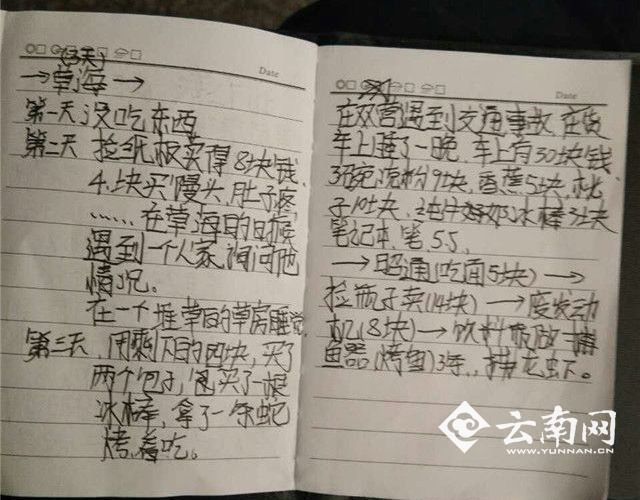 (3天)
→草海→
Date
第一天没吃东西
第二天 捡纸板卖得8块钱,
4块买馒头,肚子疼,
……在草海的时候
遇到一个人家,询问他
情况。
在一个堆草的草房睡觉
第三天,用剩下的四块,买了
两个包子,包买了一根
冰棒,拿了一条蛇
烤着吃。
Date
在双营遇到交通事故,在货
车上睡了一晚,车上有30块钱,
3碗凉粉9块,香蕉5块,桃
子10块,冰棒3块
笔记本,笔,5.5,
→昭通(吃面5块)→
捡瓶子卖(14块)→废发动
机(8块)→饮料瓶做捕
鱼器(烤鱼)3条,捕龙虾。
云南网
WWW.YUNNAN.CN